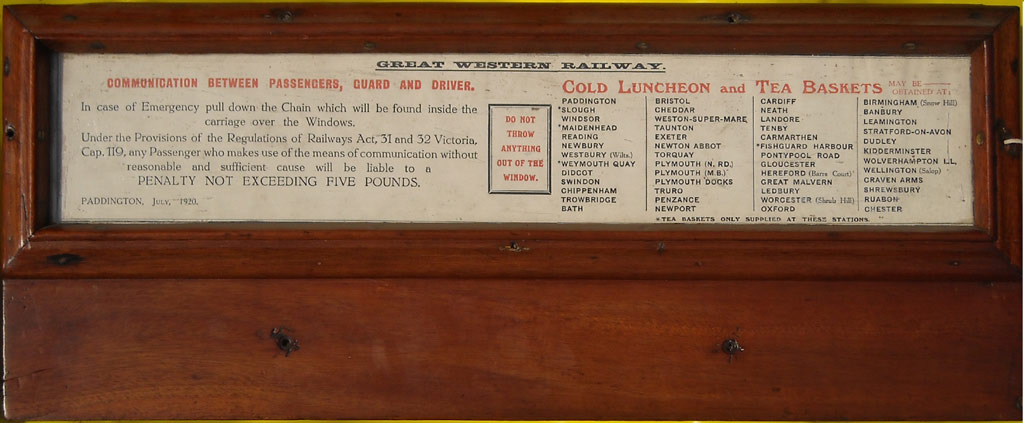 GREAT WESTERN RAILWAY.
COMMUNICATION BETWEEN PASSENGERS, GUARD AND DRIVER.
In case of Emergency pull down the Chain which will be found inside the
carriage over the Windows.
Under the Provisions of the Regulations of Railways Act, 31 and 32 Victoria,
Cap. 119, any Passenger who makes use of the means of communication without
reasonable and sufficient cause will be liable to a
PENALTY NOT EXCEEDING FIVE POUNDS.
PADDINGTON, JULY, 1920.
DO NOT
THROW
ANYTHING
OUT OF THE
WINDOW.
COLD LUNCHEON and TEA BASKETS MAY BE OBTAINED AT:
PADDINGTON
*SLOUGH
WINDSOR
*MAIDENHEAD
READING
NEWBURY
WESTBURY (Wilts.)
*WEYMOUTH QUAY
DIDCOT
SWINDON
CHIPPENHAM
TROWBRIDGE
BATH
BRISTOL
CHEDDAR
WESTON-SUPER-MARE
TAUNTON
EXETER
NEWTON ABBOT
TORQUAY
PLYMOUTH (N. RD.)
PLYMOUTH (M.B.)
PLYMOUTH DOCKS
TRURO
PENZANCE
NEWPORT
CARDIFF
NEATH
LANDORE
TENBY
CARMARTHEN
*FISHGUARD HARBOUR
PONTYPOOL ROAD
GLOUCESTER
HEREFORD (Barrs Court)
GREAT MALVERN
LEDBURY
WORCESTER (Shrub Hill)
OXFORD
BIRMINGHAM (Snow Hill)
BANBURY
LEAMINGTON
STRATFORD-ON-AVON
DUDLEY
KIDDERMINSTER
WOLVERHAMPTON L.L.
WELLINGTON (Salop)
CRAVEN ARMS
SHREWSBURY
RUABON
CHESTER
*TEA BASKETS ONLY SUPPLIED AT THESE STATIONS.